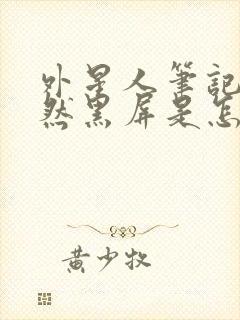 外星人筆記
然黑屏是怎
黃少牧